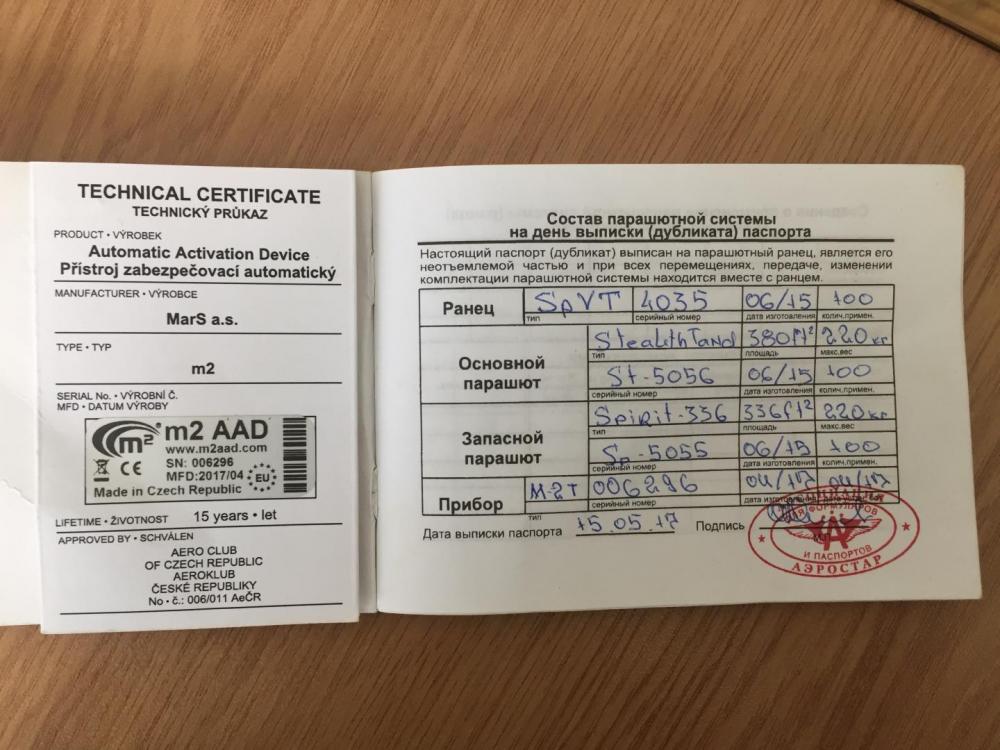 TECHNICAL CERTIFICATE
TECHNICKÝ PRŮKAZ
PRODUCT • VÝROBEK
Automatic Activation Device
Přístroj zabezpečovací automatický
MANUFACTURER • VÝROBCE
MarS a.s.
TYPE • TYP
m2
SERIAL No. • VÝROBNÍ Č.
MFD • DATUM VÝROBY
m² m2 AAD
www.m2aad.com
SN: 006296
MFD:2017/04
CE EU
Made in Czech Republic
LIFETIME • ŽIVOTNOST 15 years • let
APPROVED BY • SCHVÁLEN
AERO CLUB
OF CZECH REPUBLIC
AEROKLUB
ČESKÉ REPUBLIKY
No • č.: 006/011 AeČR
Состав парашютной системы
на день выписки (дубликата) паспорта
Настоящий паспорт (дубликат) выписан на парашютный ранец, является его
неотъемлемой частью и при всех перемещениях, передаче, изменении
комплектации парашютной системы находится вместе с ранцем.
Ранец SpVT 4035 06/15 100
тип серийный номер дата изготовления колич.примен.
Основной парашют
StealthTand 380ft² 220кг
тип площадь макс.вес
St-5056 06/15 100
серийный номер дата изготовления колич.примен.
Запасной парашют
Spirit-336 336ft² 220кг
тип площадь макс.вес
Sp-5055 06/15 100
серийный номер дата изготовления колич.примен.
Прибор М-2Т 006296 04/17 04/17
тип серийный номер
Дата выписки паспорта 15.05.17 Подпись
ДЛЯ ФОРМУЛЯРОВ
И ПАСПОРТОВ
АЭРОСТАР